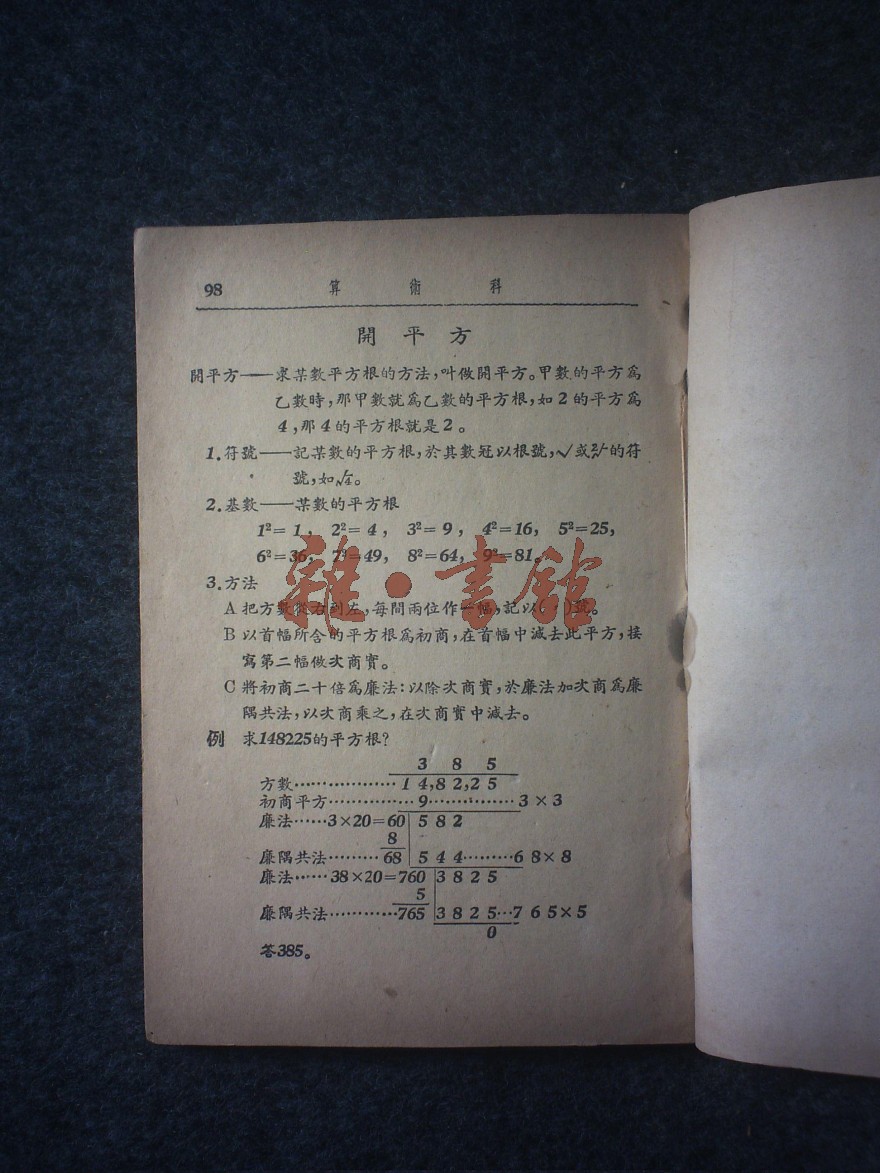 98 算術科
開平方
開平方——求某數平方根的方法,叫做開平方。甲數的平方爲
乙數時,那甲數就爲乙數的平方根,如2的平方爲
4,那4的平方根就是2。
1.符號——記某數的平方根,於其數冠以根號,√或²√的符
號,如√4。
2.基數——某數的平方根
1²=1, 2²=4, 3²=9, 4²=16, 5²=25,
6²=36, 7²=49, 8²=64, 9²=81。
3.方法
A 把方數從右到左,每間兩位作一幅,記以(,)號。
B 以首幅所含的平方根爲初商,在首幅中減去此平方,接
寫第二幅做次商實。
C 將初商二十倍爲廉法:以除次商實,於廉法加次商爲廉
隅共法,以次商乘之,在次商實中減去。
例 求148225的平方根?
3 8 5
方數………………14,82,25
初商平方……………9……………3×3
廉法……3×20=60 582
8
廉隅共法………68 544………68×8
廉法……38×20=760 3825
5
廉隅共法…………765 3825…765×5
0
答385。
雜·書館